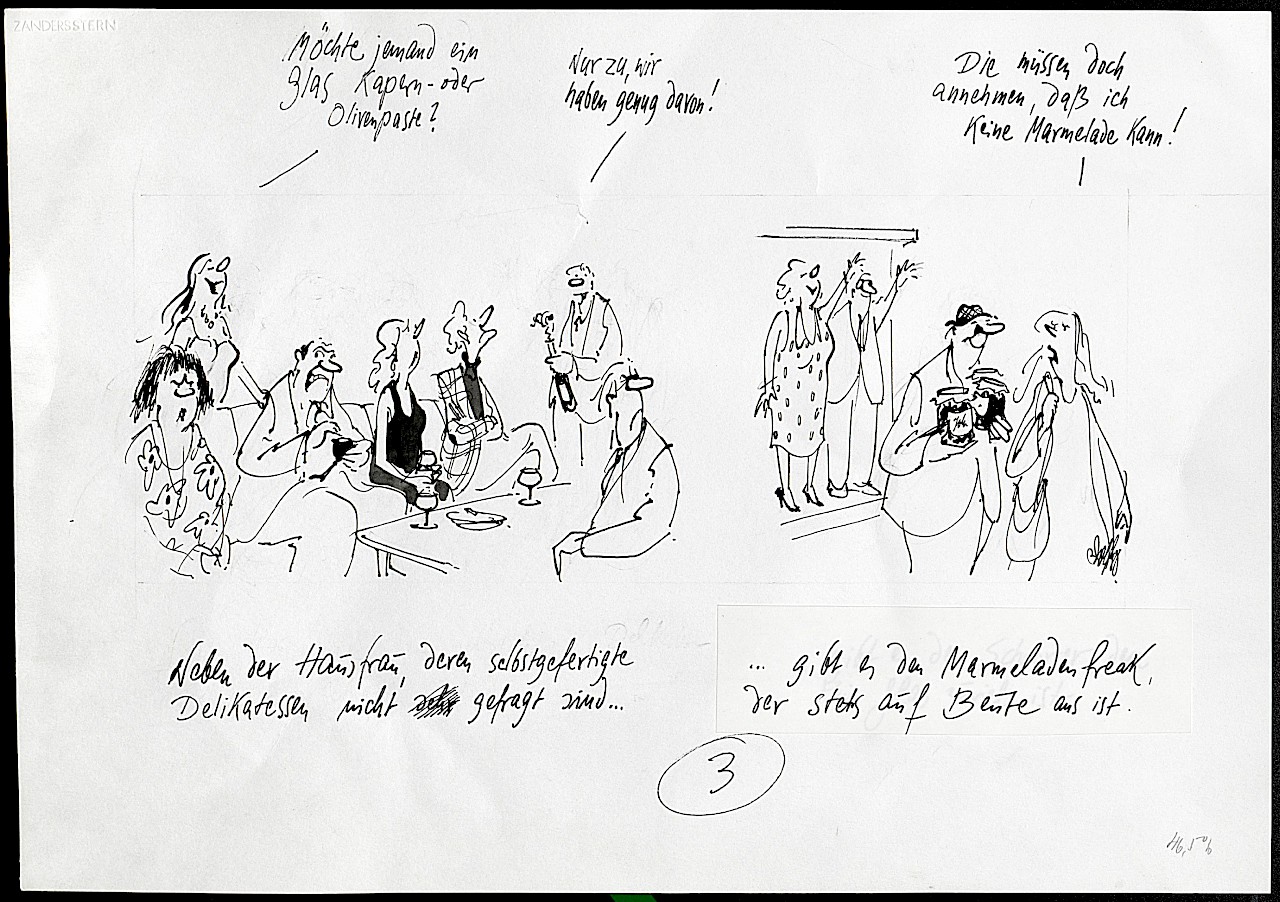 ZANDERSSTERN
Möchte jemand ein
Glas Kapern- oder
Olivenpaste?
Nur zu, wir
haben genug davon!
Die müssen doch
annehmen, daß ich
Keine Marmelade Kann!
Neben der Hausfrau, deren selbstgefertigte
Delikatessen nicht gefragt sind...
... gibt es den Marmeladenfreak,
der stets auf Beute aus ist.
3